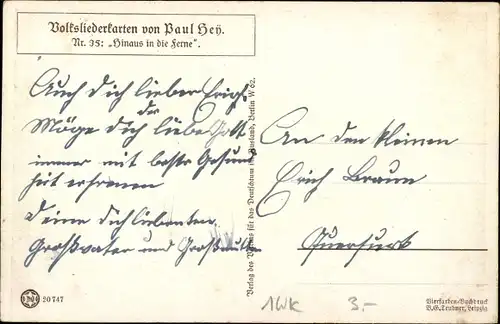 Volksliederkarten von Paul Hey.
Nr. 35: „Hinaus in die Ferne“.
Auch Dich lieber
Möge Dich der liebe Gott
immer mit beste Gesund
heit erfreuen
Deine Dich liebenden
Großvater und
An den kleinen
Erich Braun
Querfurt
Verlag des Vereins für das Deutschtum im Ausland, Berlin W 62.
20747
1WK 3.-
Vierfarben-Buchdruck
B.G. Teubner, Leipzig